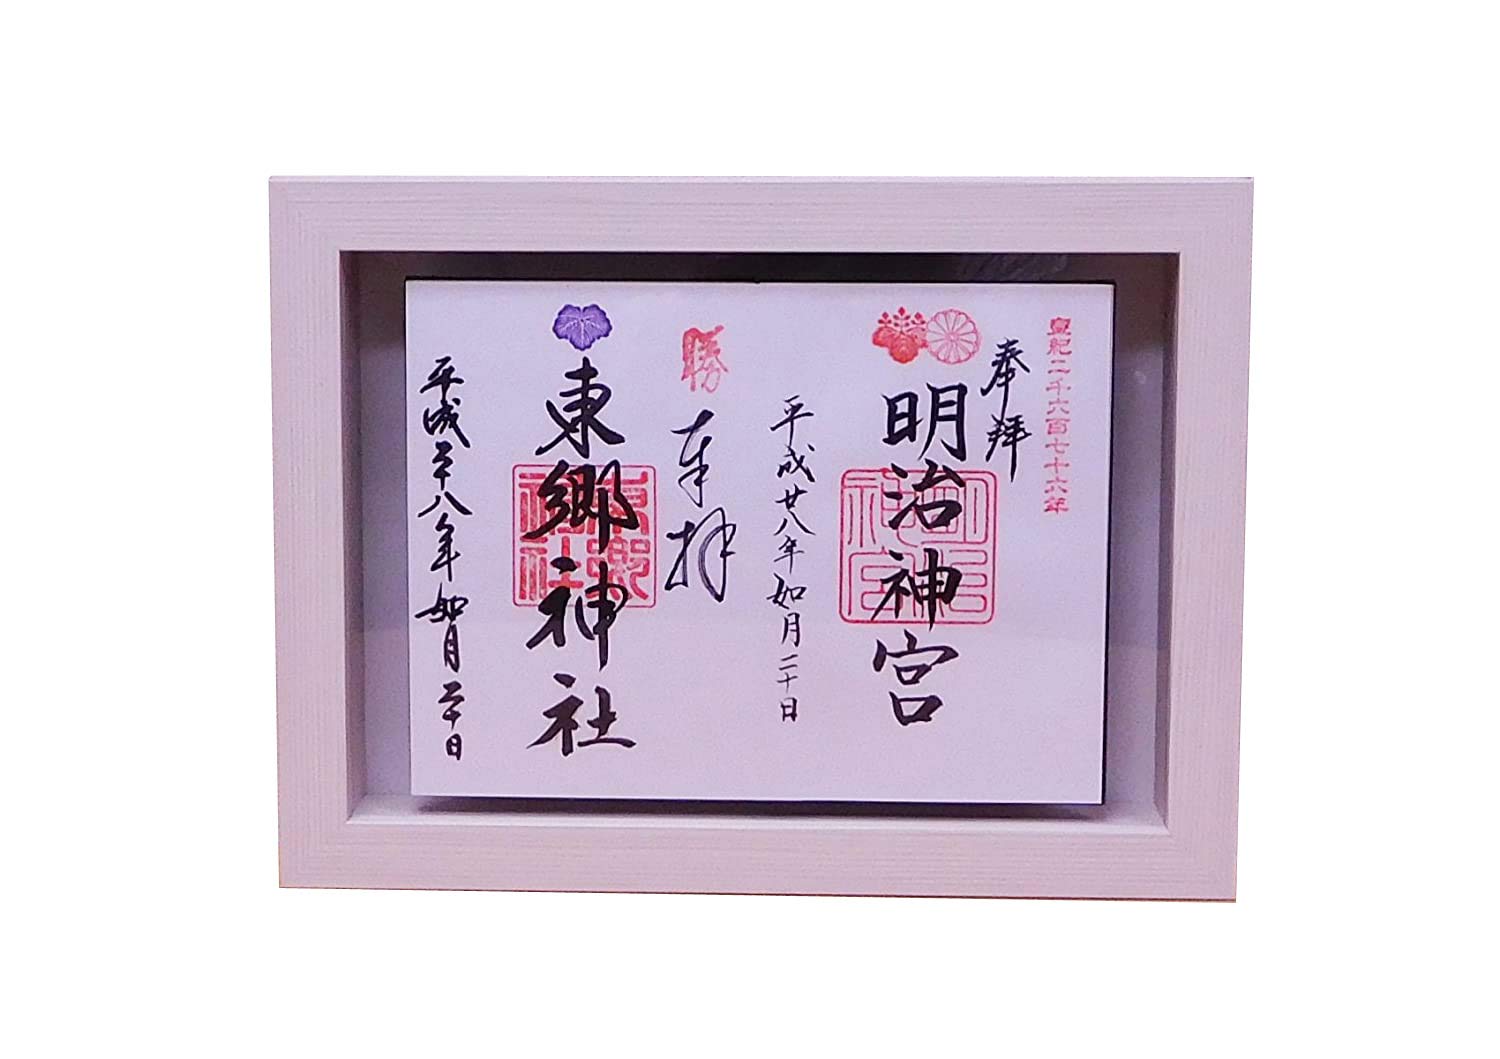 皇紀二千六百七十六年
奉拝
明治神宮
明治神宮
平成廿八年如月二十日
勝
奉拝
東郷神社
東郷神社
平成二十八年如月二十日